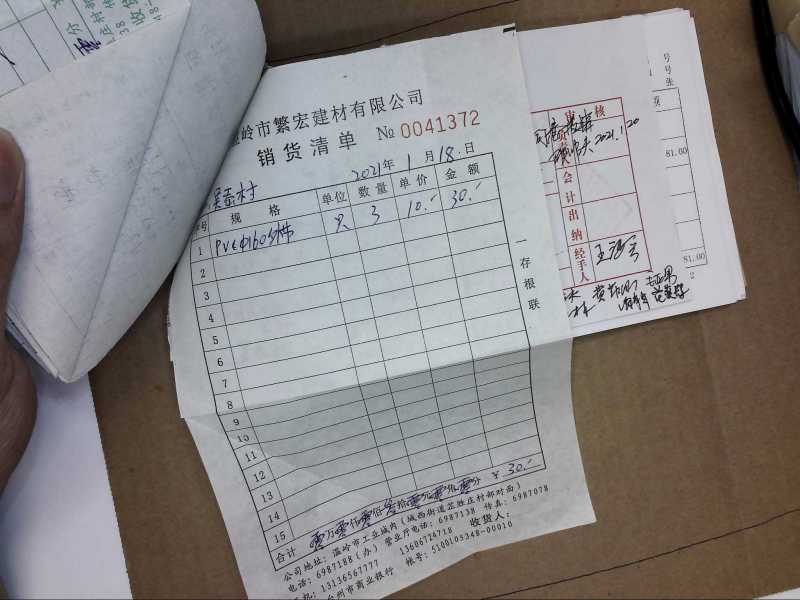 岭市繁宏建材有限公司
销货清单 № 0041372
2021年 1 月 18 日
号 规格 单位 数量 单价 金额
1 PVCΦ160 只 3 10.- 30.-
2
3
4
5
6
7
8
9
10
11
12
13
14
15
合计 零万零仟零佰 拾零元零角零分 ¥ 30.-
公司地址：温岭市工业城内（城西街道芷胜庄村部对面）
电话：6987188（办）营业厅电话：6987138 传真：6987078
机：13136567777 13606724718 收货人：
台州市商业银行 帐号：5100105348-00010
一存根联
审核
2021.1.20
会计
出纳
经手人
号
号
张
81.00
81.00
2